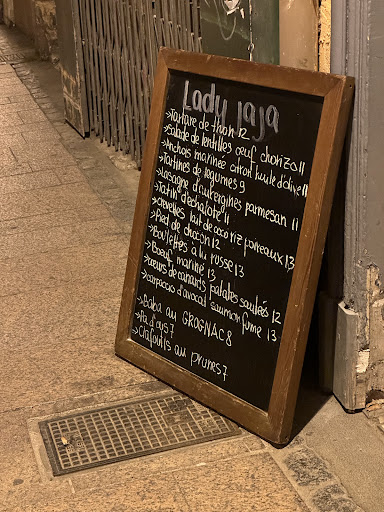 Lady jaja
→Tartare de thon 12
→salade de lentilles oeuf chorizo 11
→Anchois marinée citron huile d'olive 11
→Tartines de legumes 9
→Lasagne d'aubergines parmesan 11
→Tatin d'échalote 11
→crevettes lait de coco riz poireaux 13
→Pied de cochon 12
→Boulettes à la russe 13
→Boeuf mariné 13
→coeurs de canards patates sautées 12
→carpaccio d'avocat saumon fumé 13
→Baba au GROGNAC 8
→Pa d'ous 7
→Clafoutis au prunes 7